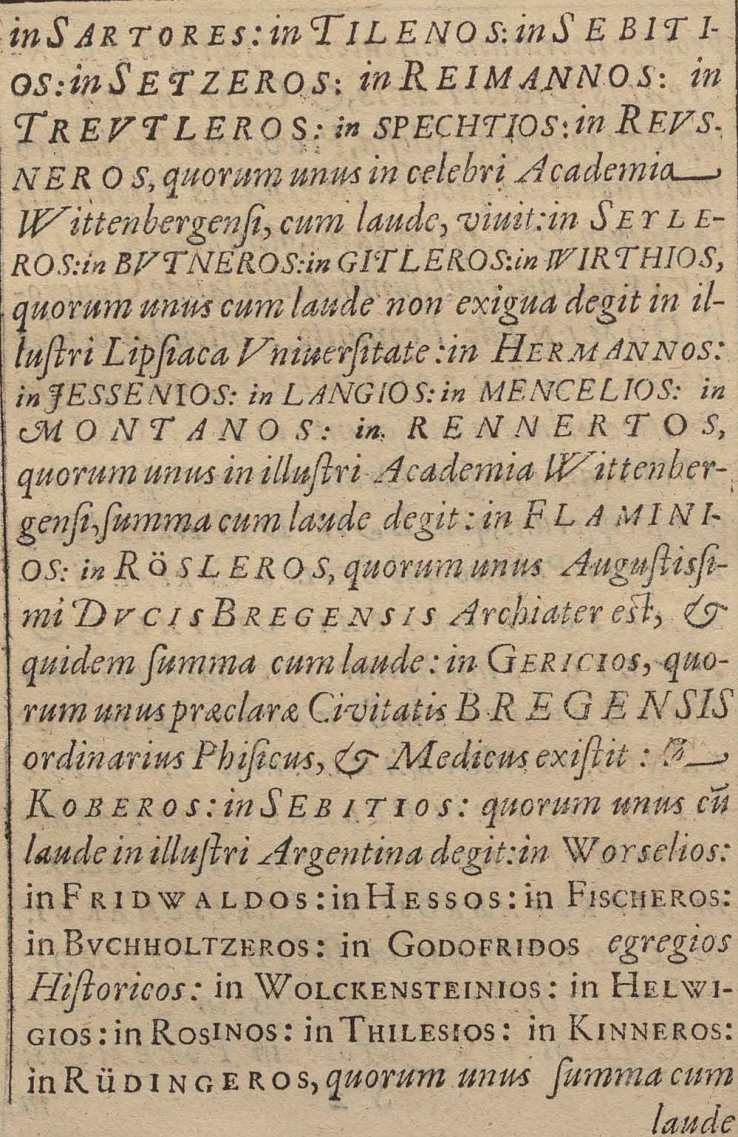 in SARTORES: in TILENOS: in SEBITI-
OS: in SETZEROS: in REIMANNOS: in
TREVTLEROS: in SPECHTIOS: in REVS-
NEROS, quorum unus in celebri Academia
Wittenbergenſi, cum laude, viuit: in SEYLE-
ROS: in BVTNEROS: in GITLEROS: in WIRTHIOS,
quorum unus cum laude non exigua degit in il-
luſtri Lipſiaca Vniuerſitate: in HERMANNOS:
in JESSENIOS: in LANGIOS: in MENCELIOS: in
MONTANOS: in RENNERTOS,
quorum unus in illuſtri Academia Wittenber-
genſi, ſumma cum laude degit: in FLAMINI-
OS: in RÖSLEROS, quorum unus Auguſtisſi-
mi DVCIS BREGENSIS Archiater eſt, &
quidem ſumma cum laude: in GERICIOS, quo-
rum unus præclaræ Civitatis BREGENSIS
ordinarius Phiſicus, & Medicus exiſtit:
KOBEROS: in SEBITIOS: quorum unus cū
laude in illuſtri Argentina degit: in Worselios:
in FRIDWALDOS: in HESSOS: in FISCHEROS:
in BVCHHOLTZEROS: in GODOFRIDOS egregios
Hiſtoricos: in WOLCKENSTEINIOS: in HELWI-
GIOS: in ROSINOS: in THILESIOS: in KINNEROS:
in RÜDINGEROS, quorum unus ſumma cum
laude